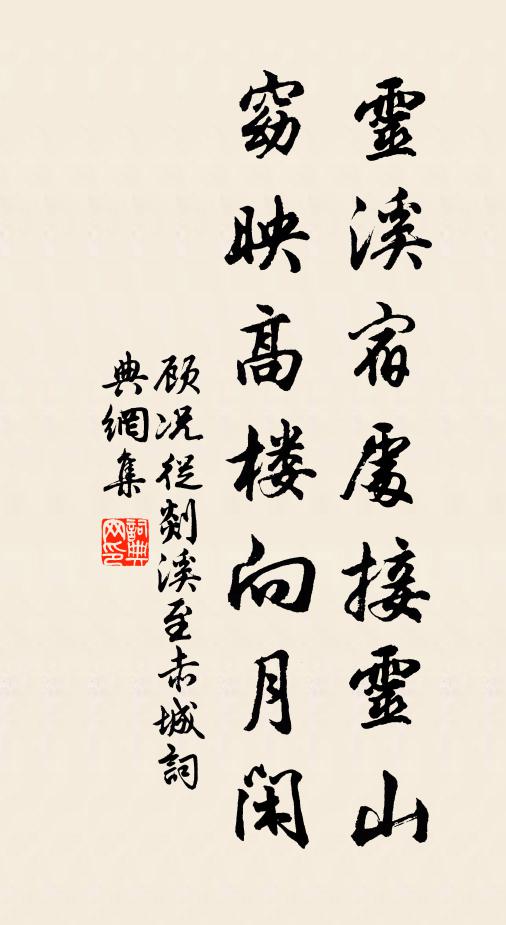 靈溪宿處接靈山
窈映高楼向月閑
顾况從剡溪至赤城詞
典網集
詞典
网印